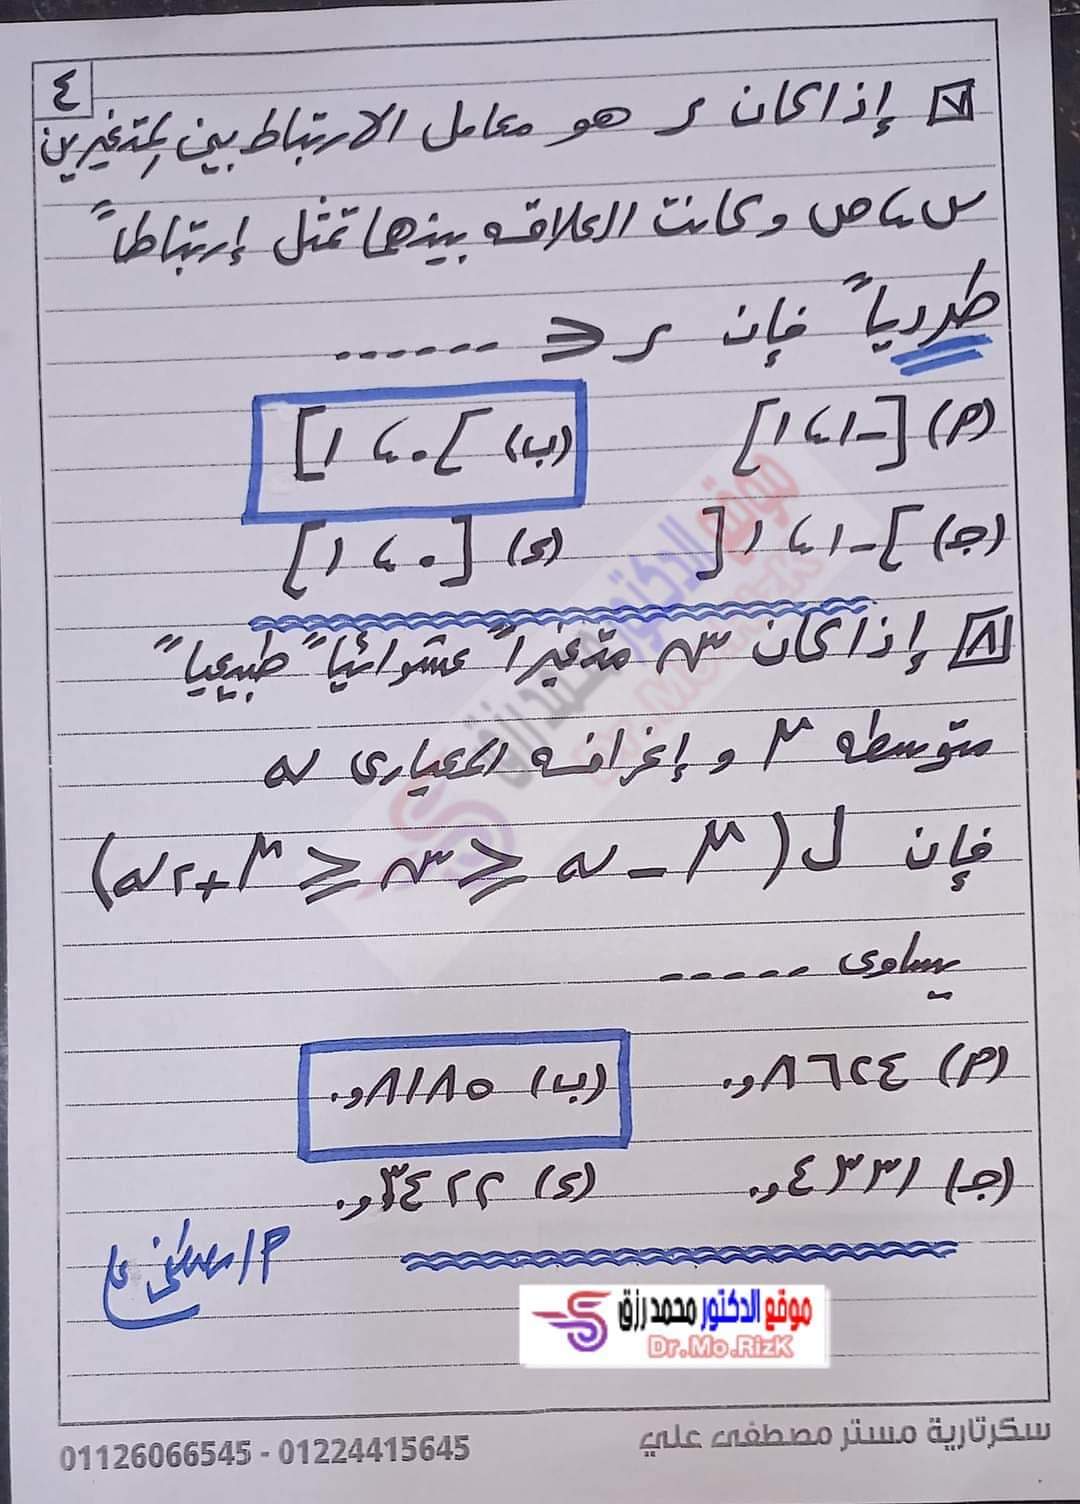 ٤
٧ إذا كان ر هو معامل الارتباط بين المتغيرين
س ، ص وكانت العلاقه بينهما تمثل إرتباطاً
طردياً فإن ر ∈ ------
(م) [-١ ، ١] (ب) ]٠ ، ١]
(جـ) ]-١ ، ١[ (د) [٠ ، ١]
٨ إذا كان س متغيراً عشوائياً طبيعياً
متوسطه μ و إنحرافه المعيارى σ
فإن ل (μ - σ ≤ س ≤ μ + ٢σ)
يساوى -----
(م) ٠,٨٦٢٤ (ب) ٠,٨١٨٥
(جـ) ٠,٤٣٣١ (د) ٠,٣٤٢٢
م/ مصطفى علي
موقع الدكتور محمد رزق
Dr.Mo.RizK
سكرتارية مستر مصطفى علي 01224415645 - 01126066545